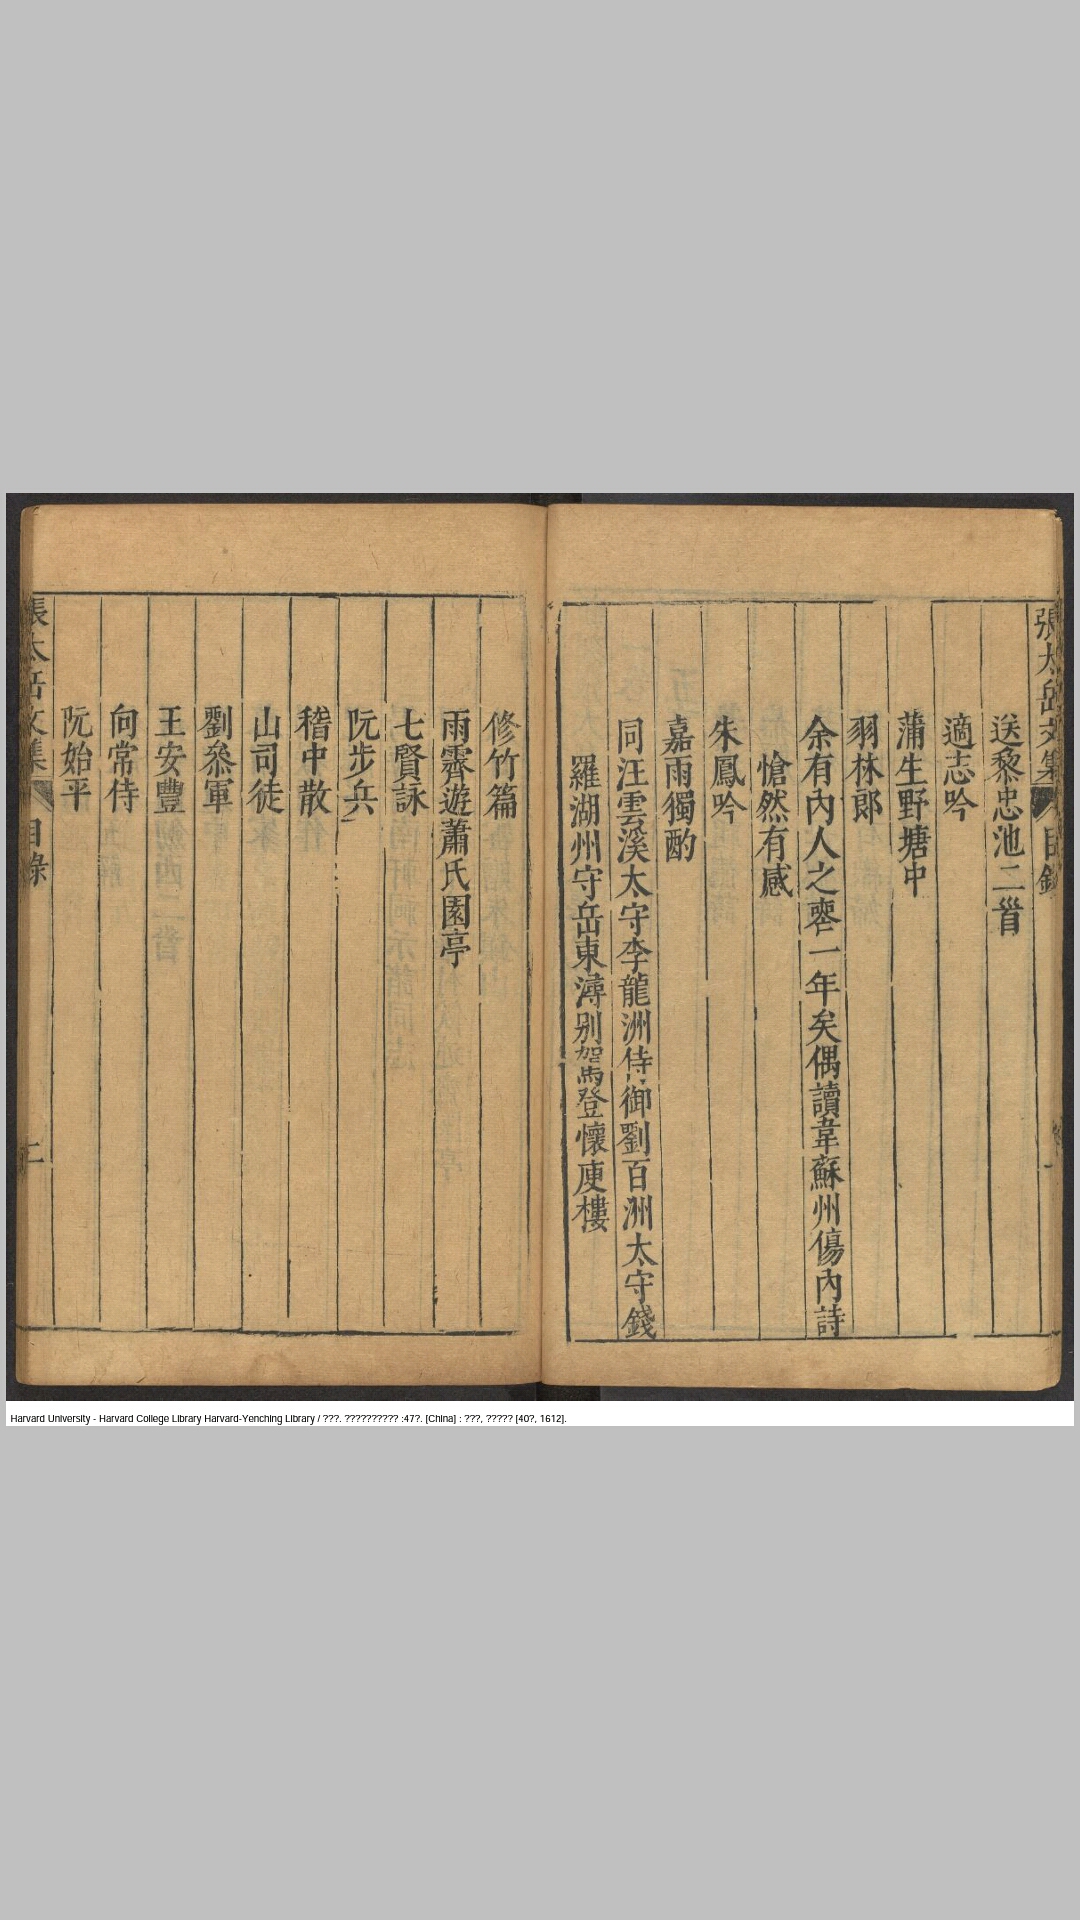 張太岳文集 目錄
送黎忠池二首
適志吟
蒲生野塘中
羽林郎
余有內人之喪一年矣偶讀韋蘇州傷內詩
愴然有感
朱鳳吟
嘉雨獨酌
同汪雲溪太守李龍洲侍御劉百洲太守錢
羅湖州守岳東潯別駕登懷庾樓
修竹篇
雨霽遊蕭氏園亭
七賢詠
阮步兵
稽中散
山司徒
劉叅軍
王安豐
向常侍
阮始平
張太岳文集 目錄 二
Harvard University - Harvard College Library Harvard-Yenching Library / ???. ?????????? :47?. [China] : ???, ????? [40?, 1612].